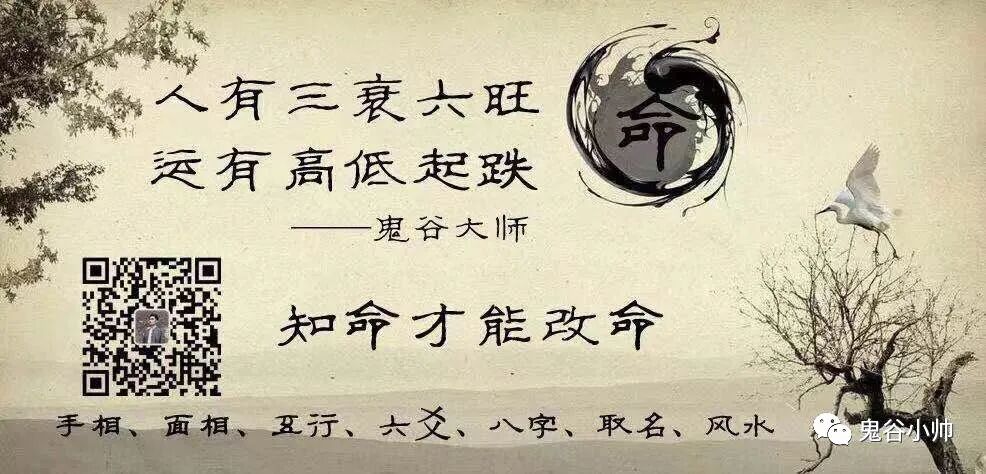 人有三衰六旺
运有高低起跌
——鬼谷大师
命
知命才能改命
手相、面相、五行、六爻、八字、取名、风水
鬼谷小帅